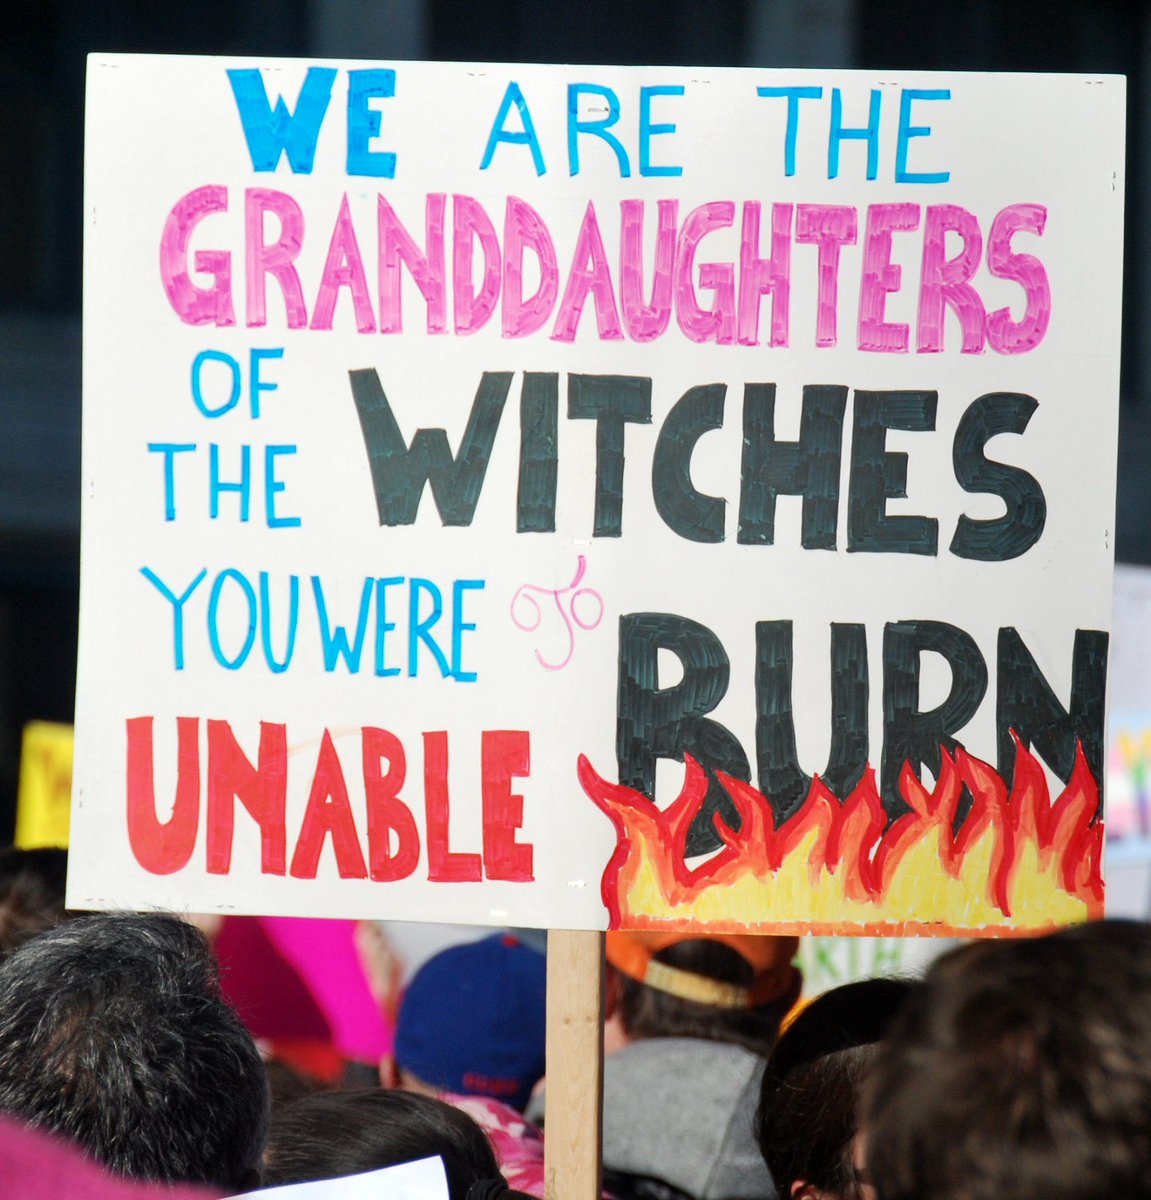 WE ARE THE
GRANDDAUGHTERS
OF
THE WITCHES
YOU WERE
UNABLE BURN